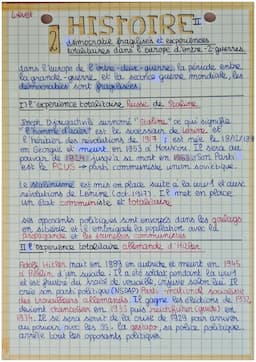 2 HISTOIRE II
démocratie fragilisées et expériences
totalitaires dans l'europe d'entre-2-guerres.
dans l'europe de l'entre-deux-guerre, la période entre
la grande-guerre et la seconde guerre mondiale, les
démocraties sont fragilisées.
I l'expérience totalitaire Russe de Staline.
Joseph Djougachvili surnommé "Staline" ce qui signifie
"l'homme d'acier" est le successeur de Lénine et
l'héritier des révolutions de 1917
en Georgie et meurt en 1953 à Moscou. Il sera au
pouvoir de 1924 jusqu'à sa mort en 1953. Son Parti
est le PCUS → parti communiste union soviétique.
Le stalinisme est mis en place suite à la ww1 et aux
révolutions de Lénine (oct. 1917). Il met en place
un état communiste et totalitaire
ses opposants politiques sont envoyés dans les goulags
en sibérie et il embrigade la population avec la
propagande
II l'expérience totalitaire allemande d'Hitler.
Adolf Hitler nait en 1889 en autriche et meurt en 1945
à Berlin d'un suicide. Il a été soldat pendant la ww1
et est frustré du traité de versaille,
crée son parti politique (NSDAP) Parti national socialiste
des travailleurs allemands. Il gagne les élections de 1932,
devient chancelier en 1933 puis reichführer (guide) en
1934. Il se sera servi de la crise de 1929 pour arriver
au pouvoir avec les SS. la gestapo, sa police politique
arrête tout les opposants politiques.